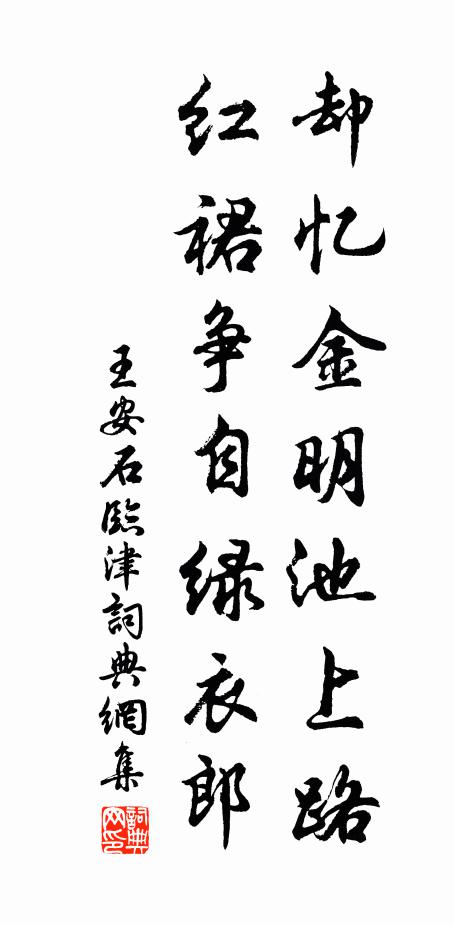 却忆金明池上路
红裙争自绿衣郎
王安石臨津詞典網集
詞典网印